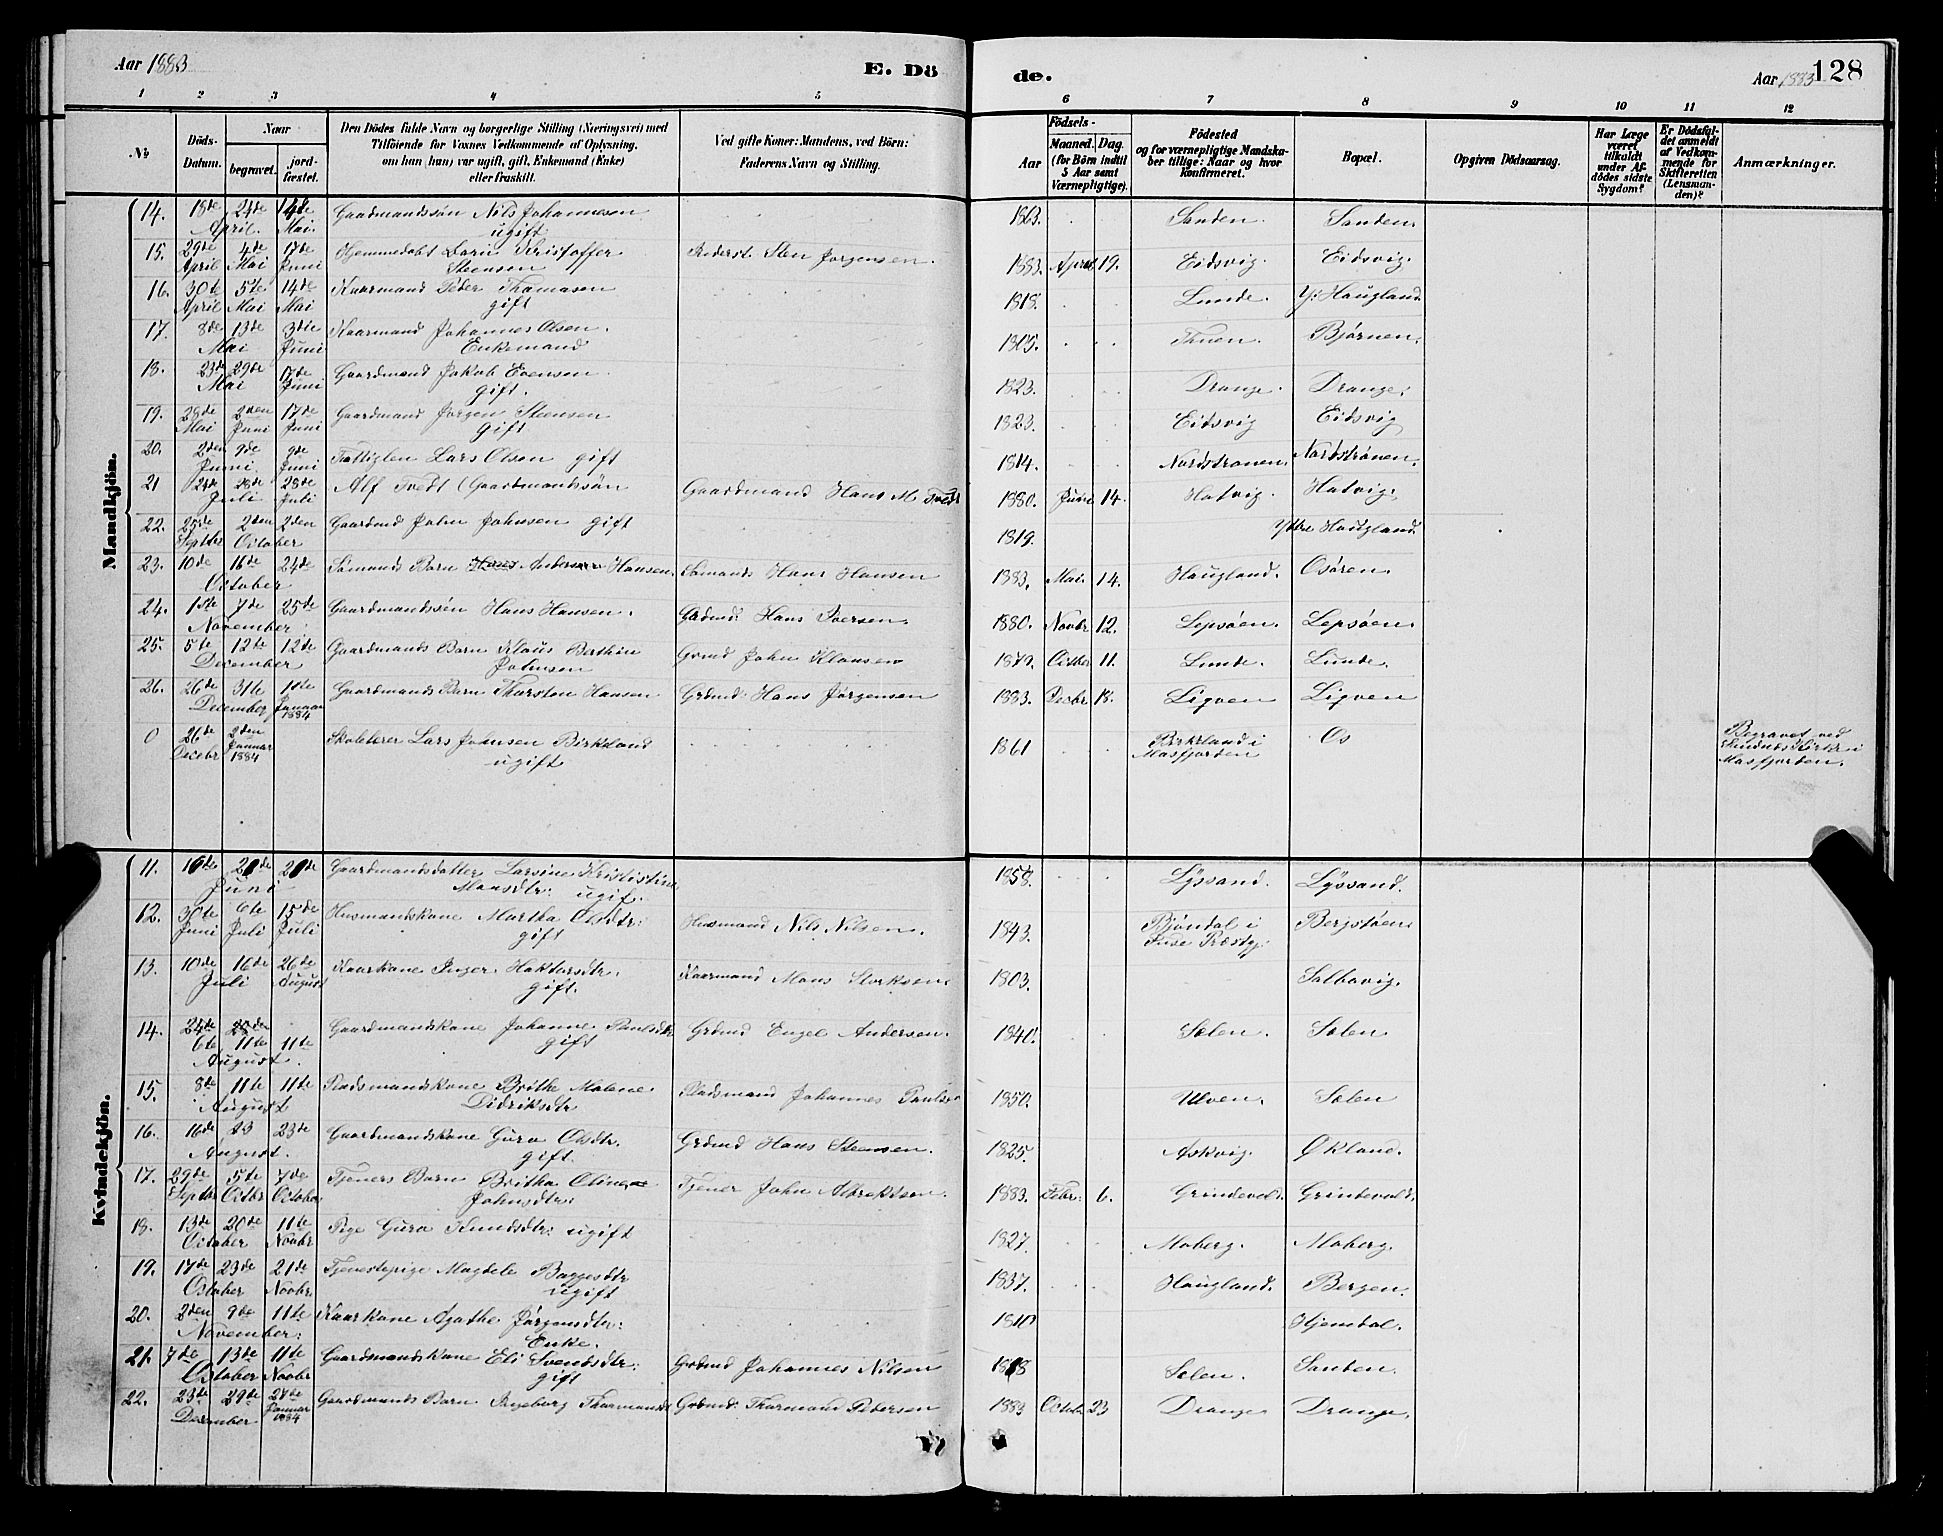 Aar 1883
E. Dö
de.
Aar 1883
128
1 2 3 4 5 6 7 8 9 10 11 12
No
Döds-Datum.
Naar
begravet.
jord-fæstet.
Den Dödes fulde Navn og borgerlige Stilling (Næringsvei) med
Tilföiende for Voxnes Vedkommende af Oplysning.
om han (hun) var ugift, gift, Enkemand (Enke)
eller fraskilt.
Ved gifte Koner: Mandens, ved Börn:
Faderens Navn og Stilling.
Födsels-
Aar
Maaned. Dag.
(for Börn indtil
5 Aar samt
Værnepligtige).
Födested
og for værnepligtige Mandska-
ber tillige: Naar og hvor
Konfirmeret.
Bopæl.
Opgiven Dödsaarsag.
Har Læge
været
tilkaldt
under Af-
dödes sidste
Sygdom?
Er Dödsfal-
det anmeldt
af Vedkom-
mende for
Skifteretten
(Lensman-
den)?
Anmærkninger.
Mandkjön.
14. 18de April 24de 14de Mai. Gaardmandssön Nils Johannesen ugift 1863. Sanden. Sanden.
15. 29de April 4de Mai 17de Juni Hjemmedöbt Barn Kristoffer Steensen Sten Jørgensen. 1883. April 19. Eidsvig. Eidsvig.
16. 30te April 5te Mai 14de Mai Kaarmand Peder Thomasen gift 1818. Lunde. Y. Haugland.
17. 8de Mai 13de 3die Juni Kaarmand Johannes Olsen. Enkemand Tuen. Bjørnen.
18. 23de Mai 29de 17de Juni Gaardmand Jakob Evensen. gift. 1823. Drange. Drange.
19. 28de Mai 2den Juni 17de Juni Gaardmand Jørgen Steensen gift 1823. Eidsvig Eidsvig
20. 2den Juni 9de 9de Juni Fattiglem Lars Olsen gift 1814. Nordstrønen. Nordstrønen.
21 24de Juli 28de 28de Juli Alf Tvedt (Gaardmandssön Gaardmand Hans M. Tvedt 1880. Juni 14. Hatvig. Hatvig.
22. 25de Septbr 2den October 2den Gaardmd John Johnsen gift 1819. Yttre Haugland.
23. 10de October 16de 24de Sömands Barn Hans Andersen Hansen Sömand Hans Hansen 1883. Mai. 14. Haugland. Osøren.
24. 1ste November 7de 25de Gaardmandssön Hans Hansen. Grdmd. Hans Iversen. 1880. Novbr 12. Lepsøen. Lepsøen.
25. 5te December 12te 12te Gaardmands Barn Klaus Johnsen Grmd John Klausen October 11. Lunde. Lunde.
26. 26de December 31te 1ste Januar 1884 Gaardmands Barn Thorsten Hansen Grdmd: Hans Jørgensen 1883. Decbr 18. Ligven Ligven
0 26de Decebr 2den Januar 1884 Skolelærer Lars Johnsen Birkeland ugift 1861 Birkeland i Masfjorden Os Begravet ved Kirke i Masfjorden.
Kvindekjön.
11. Juni Gaardmandsdatter Larsine Kristine Monsdtr: ugift. 1858. Lyssand. Lyssand.
12. 30te Juni 6te Juli 15de Juli Husmandskone Martha Olsdtr: gift Husmand Nils Nilsen. 1843. Bjøndal i Fuse Præstgj. Bergstøen.
13. 10de Juli 16de 26de August Kaarkone Inger Haktorsdtr. gift. Kaarmand Mons Storksen 1803. Salbovig.
14. 24de
6te August 11te 11te Gaardmandskone Johanne Paulsdtr gift Grdmd Engel Andersen. 1840. Sølen. Sølen
15. 8de August 11te 11te Pladsmandskone Brithe Malene Didriksdtr Pladsmand Johannes Paulsen 1850. Ulven. Sølen
16. 16de August. 23 23de Gaardmandskone Guro Olsdtr. gift. Grdmd Hans Steensen. 1825. Askvig. Økland.
17. 29de Septbr 5te Octbr 7de October Tjeners Barn Britha Oline Johnsdtr: Tjener John Albrektsen. 1883. Febr: 6. Grindevold. Grindevold.
18. 13de October 20de 11te Novbr Pige Guro Knudsdtr: ugift 1827. Moberg. Moberg.
19. 17de October 23de 21de Novbr Tjenestepige Magdele Baggesdtr ugift 1837. Haugland. Bergen.
20. 2den November. 9de 11te Kaarkone Agathe Jørgensdtr: Enke. Hjemdal.
21. 7de October 13de 11te Novbr Gaardmandskone Eli Svendsdtr: gift Grdmd Johannes Nilsen Sølen. Sanden.
22. 23de December 29de 27de Januar 1884 Gaardmands Barn Ingeborg Thormandsdtr Grdmd: Thormand Petersen 1883 October 23 Drange Drange.